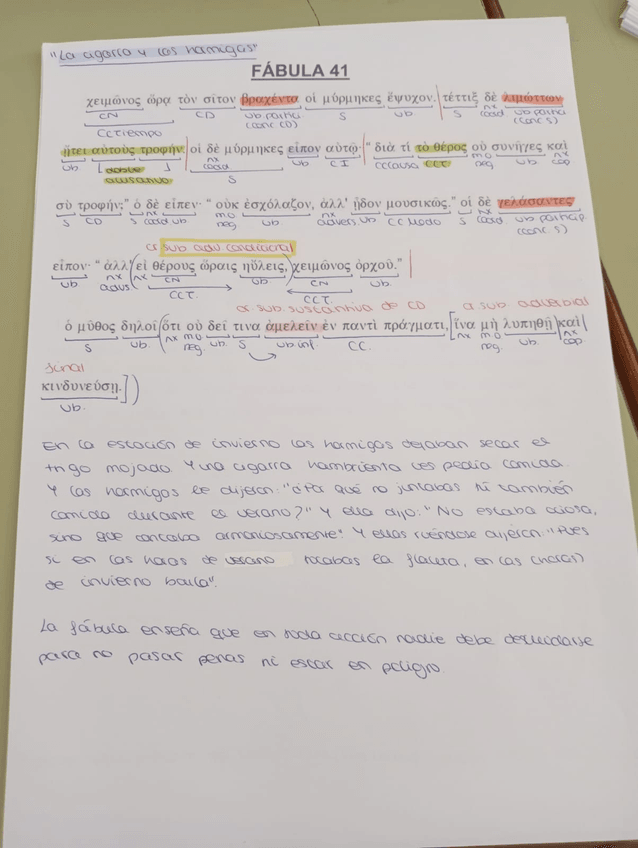 "La cigarra y las hormigas"
FÁBULA 41
χειμῶνος ὥρᾳ τὸν σῖτον βραχέντα οἱ μύρμηκες ἔψυχον. τέττιξ δὲ λιμώττων
CN CD vb particip (conc CD) S vb S nx coord vb particip (conc S)
CCTiempo
ᾔτει αὐτοὺς τροφήν. οἱ δὲ μύρμηκες εἶπον αὐτῷ· "διὰ τί τὸ θέρος οὐ συνῆγες καὶ
vb doble acusativo nx coord S vb CI CCCausa CCT mo neg vb nx cop
σὺ τροφήν;" ὁ δὲ εἶπεν· "οὐκ ἐσχόλαζον, ἀλλ' ᾖδον μουσικῶς." οἱ δὲ γελάσαντες
S CD S nx coord vb mo neg vb nx advers. vb CC Modo S nx coord vb particip (conc. S)
or sub adv condicional
εἶπον· "ἀλλ' (εἰ θέρους ὥραις ηὔλεις,) χειμῶνος ὀρχοῦ."
vb nx advs nx CN vb CN vb
CCT. CCT.
or. sub. sustantiva de CD or sub adverbial
ὁ μῦθος δηλοῖ (ὅτι οὐ δεῖ τινα ἀμελεῖν ἐν παντὶ πράγματι, [ἵνα μὴ λυπηθῇ καὶ
S vb. nx mo neg. vb S vb inf. CC. nx mo neg. vb. nx cop.
final
κινδυνεύσῃ.])
vb.
En la estación de invierno las hormigas dejaban secar el
trigo mojado. Y una cigarra hambrienta les pedía comida.
Y las hormigas le dijeron: "¿Por qué no juntabas tú también
comida durante el verano?" Y ella dijo: "No estaba ociosa,
sino que cantaba armoniosamente". Y ellas riéndose dijeron: "Pues
si en las horas de verano tocabas la flauta, en las (horas)
de invierno baila".
La fábula enseña que en toda acción nadie debe descuidarse
para no pasar penas ni estar en peligro.